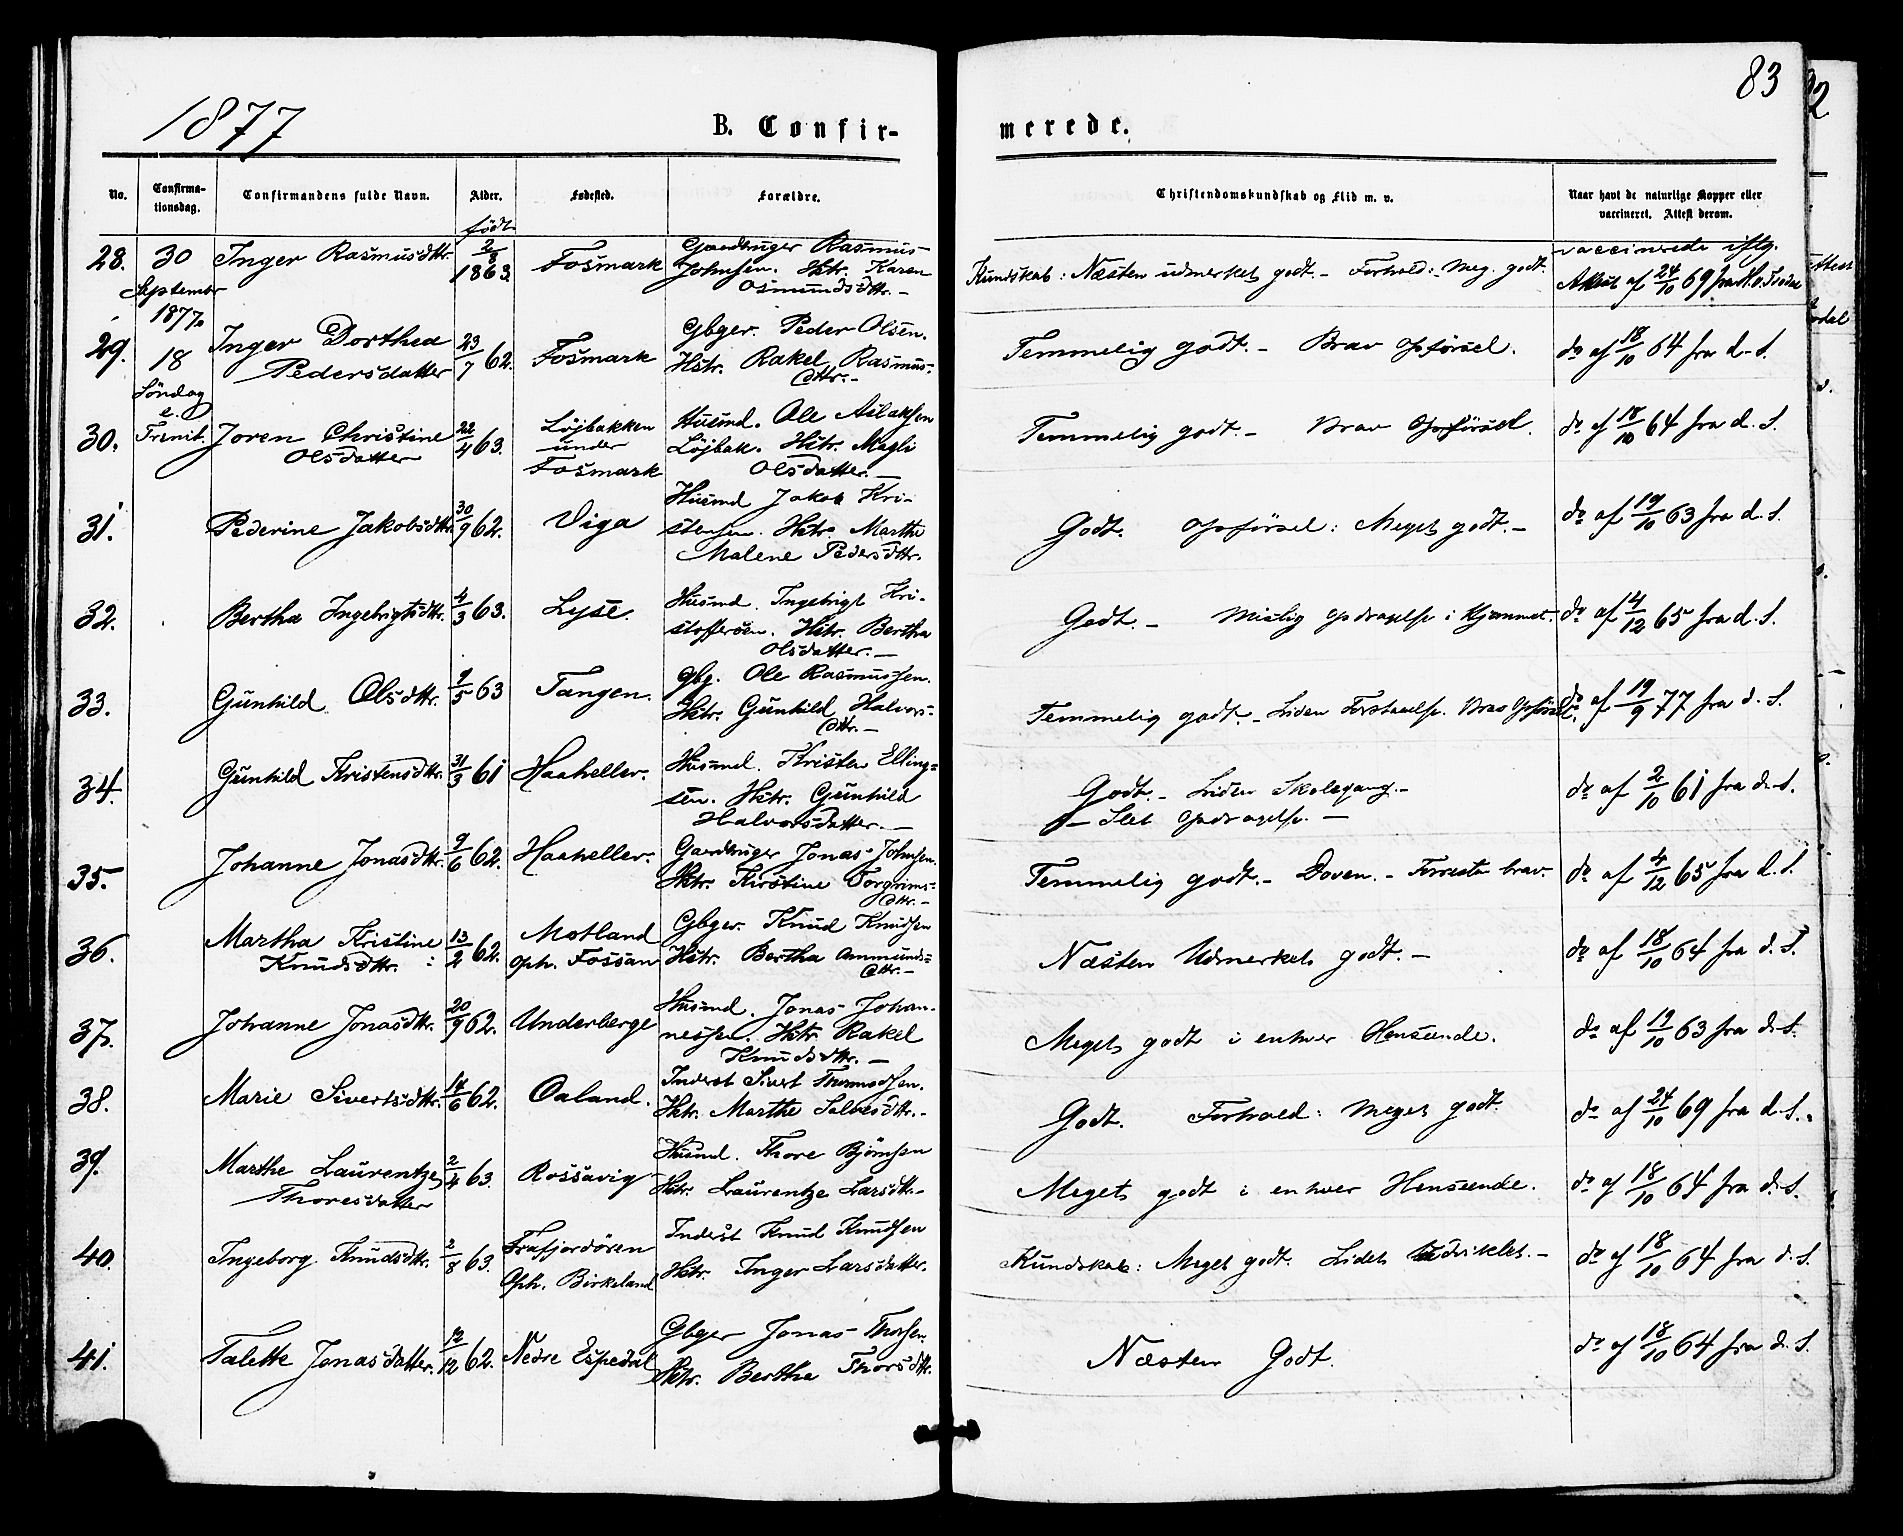 83
1877
B. Confir-
merede.
No.
Confirma-
tionsdag.
Confirmandens fulde Navn.
Alder.
Fødested.
Forældre.
Christendomskundskab og Flid m. v.
Naar havt de naturlige Kopper eller
vaccineret. Attest derom.
født
28. 30 September 1877. Inger Rasmusdttr. 2/8 1863. Fosmark Gaardbruger Rasmus
Johnsen. Hstr. Karen
Osmundsdttr. —
Kundskab: Næsten udmerket godt. – Forhold: Meg. godt.
vaccinerede iflg.
Attest af 24/10 69 fra
29. 18 Söndag e. Trinit. Inger Dorthea
Pedersdatter 23/7 62. Fosmark Gbger. Peder Olsen.
Hstr. Rakel Rasmus-
dttr. –
Temmelig godt. – Brav Opførsel. do af 18/10 64 fra d. S.
30. Joren Christine
Olsdatter 22/4 63. Löjbakken
under
Fosmark Husmd. Ole Aslaksen
Löjbak. Hstr. Magli
Olsdatter. —
Temmelig godt. – Brav Opførsel. do af 18/10 64 fra d. S.
31. Pederine Jakobsdttr. 30/9 62. Viga Husmd Jakob Kri-
stensen. Hstr. Marthe
Malene Pedersdttr.
Godt. Opførsel: Meget godt. – do af 19/10 63 fra d. S.
32. Bertha Ingebrigtsdttr. 4/3 63. Lyse. Husmd. Ingebrigt Kri-
stoffersen. Hstr. Bertha
Olsdatter. —
Godt. – Mislig Opdragelse i Hjemmet. do af 4/12 65 fra d. S.
33. Gunhild Olsdttr. 9/5 63 Tangen. Gbg. Ole Rasmussen.
Hstr. Gunhild Halvors-
dttr. —
Temmelig godt. – Liden Forstaaelse. Brav Opførsel. do af 19/9 77 fra d. S.
34. Gunhild Kristensdttr. 31/3 61 Haaheller. Husmd. Kristen Elling-
sen. Hstr. Gunhild
Halvorsdatter. —
Godt. – Liden Skolegang. –
– Slet Opdragelse. —
do af 2/10 61 fra d. S.
35. Johanne Jonasdttr. 9/6 62. Haaheller. Gaardbruger Jonas Johnsen.
Hstr. Kirstine Torgrims-
dttr. –
Temmelig godt. – Doven. – Forresten brav. do af 4/12 65 fra d. S.
36. Martha Kristine
Knudsdttr. 13/2 62. Motland
Oph. Fossan Gbger. Knud Knudsen
Hstr. Bertha Ammunds-
dttr. –
Næsten Udmerket godt. – do af 18/10 64 fra d. S.
37. Johanne Jonasdttr. 20/9 62. Underberge Husmd. Jonas Johan-
nessen. Hstr. Rakel
Knudsdttr. —
Meget godt i enhver Henseende. do af 19/10 63 fra d. S.
38. Marie Sivertsdttr. 14/6 62. Oaland. Inderst Sivert
Hstr. Marthe Salvesdttr. –
Godt. Forhold: Meget godt. do af 24/10 69 fra d. S.
39. Marthe Laurentze
Thoresdatter 2/4 63. Rossavig Husmd. Thore Björnsen
Hstr. Laurentze Larsdttr. –
Meget godt i enhver Henseende. do af 18/10 64 fra d. S.
40. Ingeborg Knudsdttr. 2/8 63. Frafjordören
Oph. Birkeland Inderst Knud Knudsen
Hstr. Inger Larsdatter.
Kundskab: Meget godt. Lidet Udviklet. – do af 18/10 64 fra d. S.
41. Talette Jonasdatter. 12/12 62. Nedre Espedal Gbger Jonas Thorsen.
Hstr. Berthe Thorsdttr.
Næsten Godt. do af 18/10 64 fra d. S.